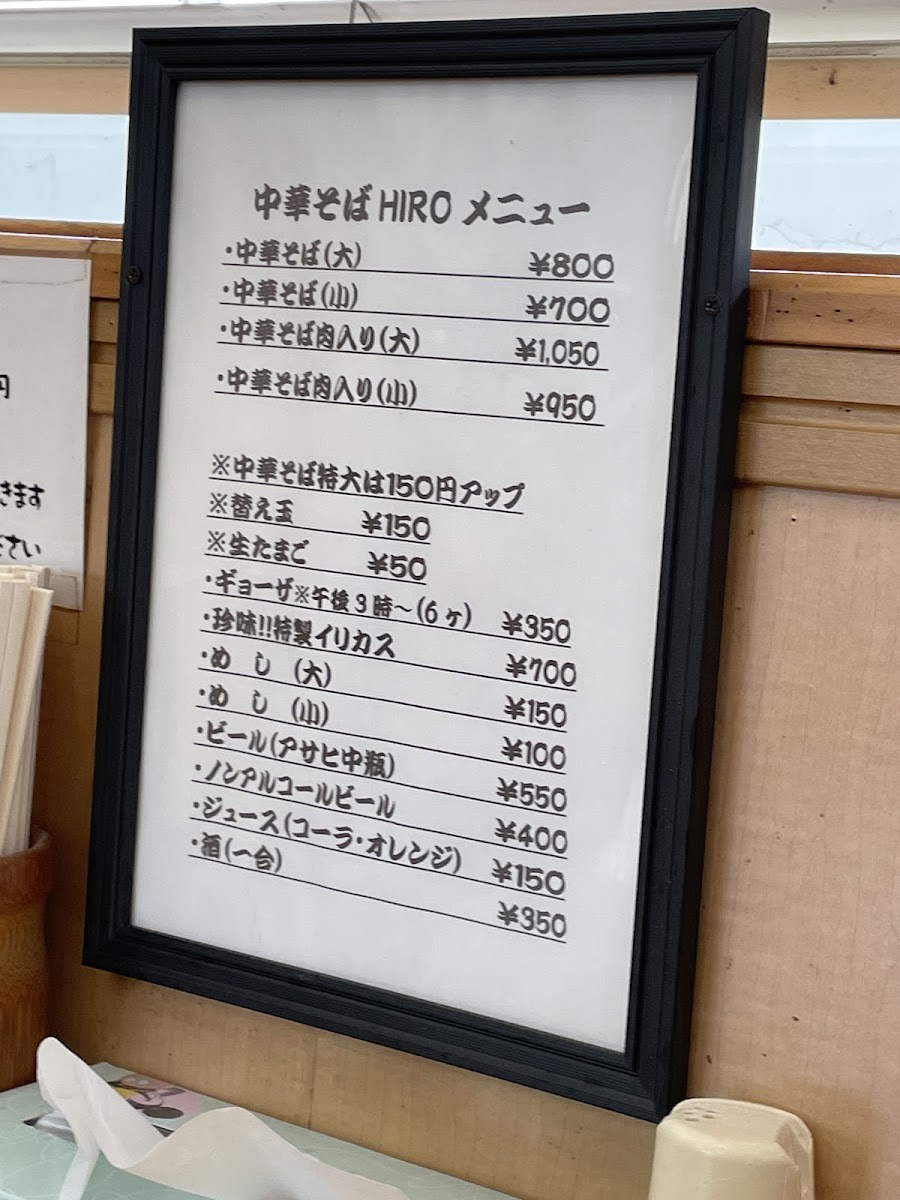 中華そば HIRO メニュー
・中華そば(大) ¥800
・中華そば(小) ¥700
・中華そば肉入り(大) ¥1,050
・中華そば肉入り(小) ¥950
※中華そば特大は150円アップ
※替え玉 ¥150
※生たまご ¥50
・ギョーザ※午後3時～(6ヶ) ¥350
・珍味!!特製イリカス ¥700
・めし (大) ¥150
・めし (小) ¥100
・ビール(アサヒ中瓶) ¥550
・ノンアルコールビール ¥400
・ジュース(コーラ・オレンジ) ¥150
・酒(一合) ¥350
円
きます
ださい